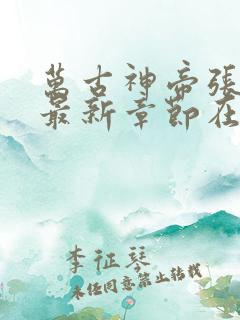 萬古神帝張
最新章節在
李征琴
未經同意禁止轉載